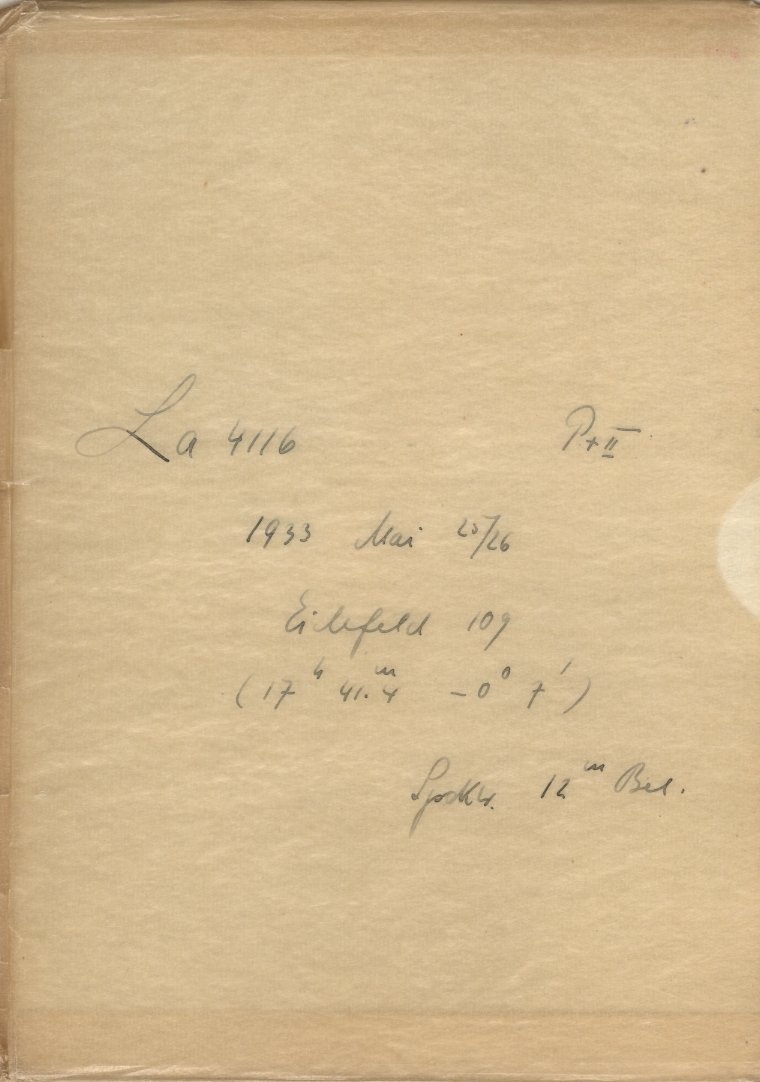 La 4116 Pr II
1933 Mai 25/26
Eichfeld 109
(17h 41.m4 -0° 7')
12m Bel.